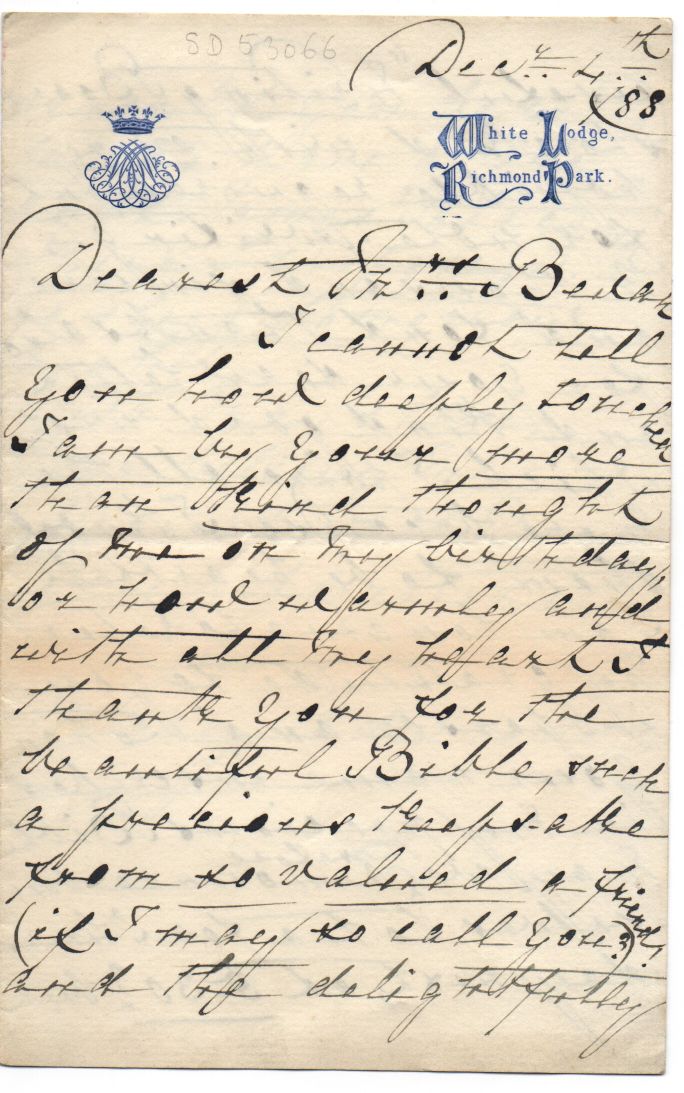 SD 53066
Decr. 4th
/88
White Lodge,
Richmond Park.
Dearest Mrs. Bevan
I cannot tell
you how deeply touched
I am by your more
than kind thought
of me on my birthday,
or how warmly and
with all my heart I
thank you for the
beautiful Bible, such
a precious keeps-ake
from so valued a friend,
(if I may so call you?)!
and the delightfully